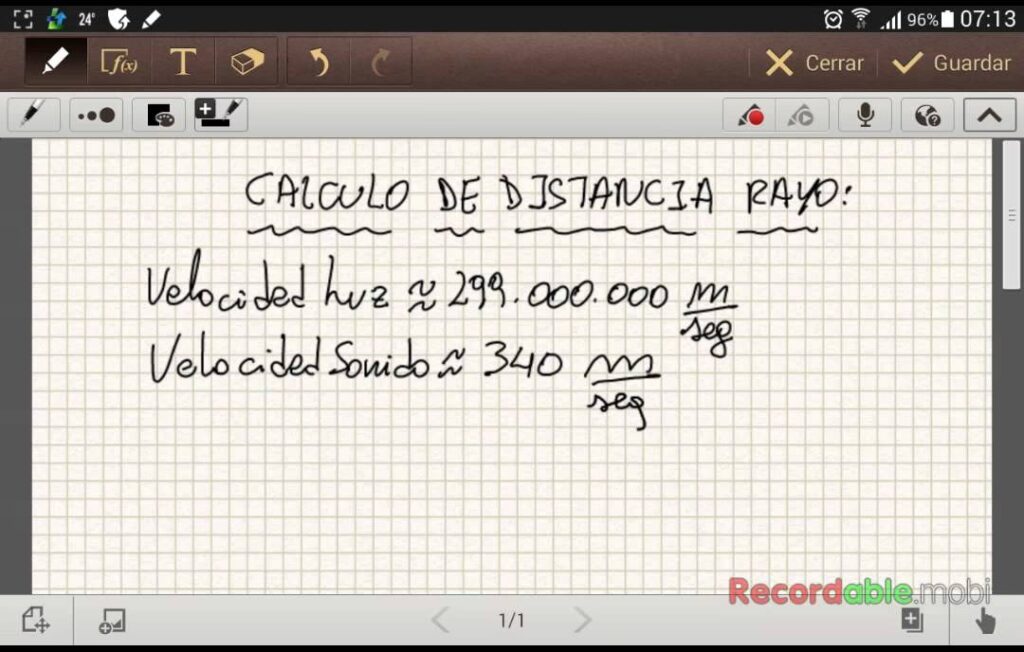 24° 96% 07:13
f(x) T Cerrar Guardar
CALCULO DE DISTANCIA RAYO:
Velocided luz ≈ 299.000.000 m/seg
Velocided Sonido ≈ 340 m/seg
Recordable.mobi
1/1